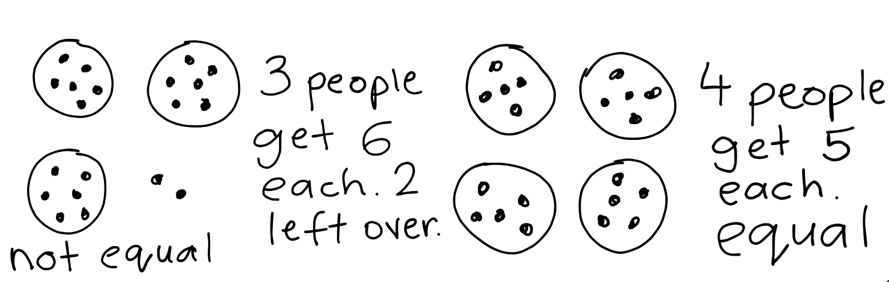 3 people
get 6
each. 2
left over.
not equal
4 people
get 5
each.
equal